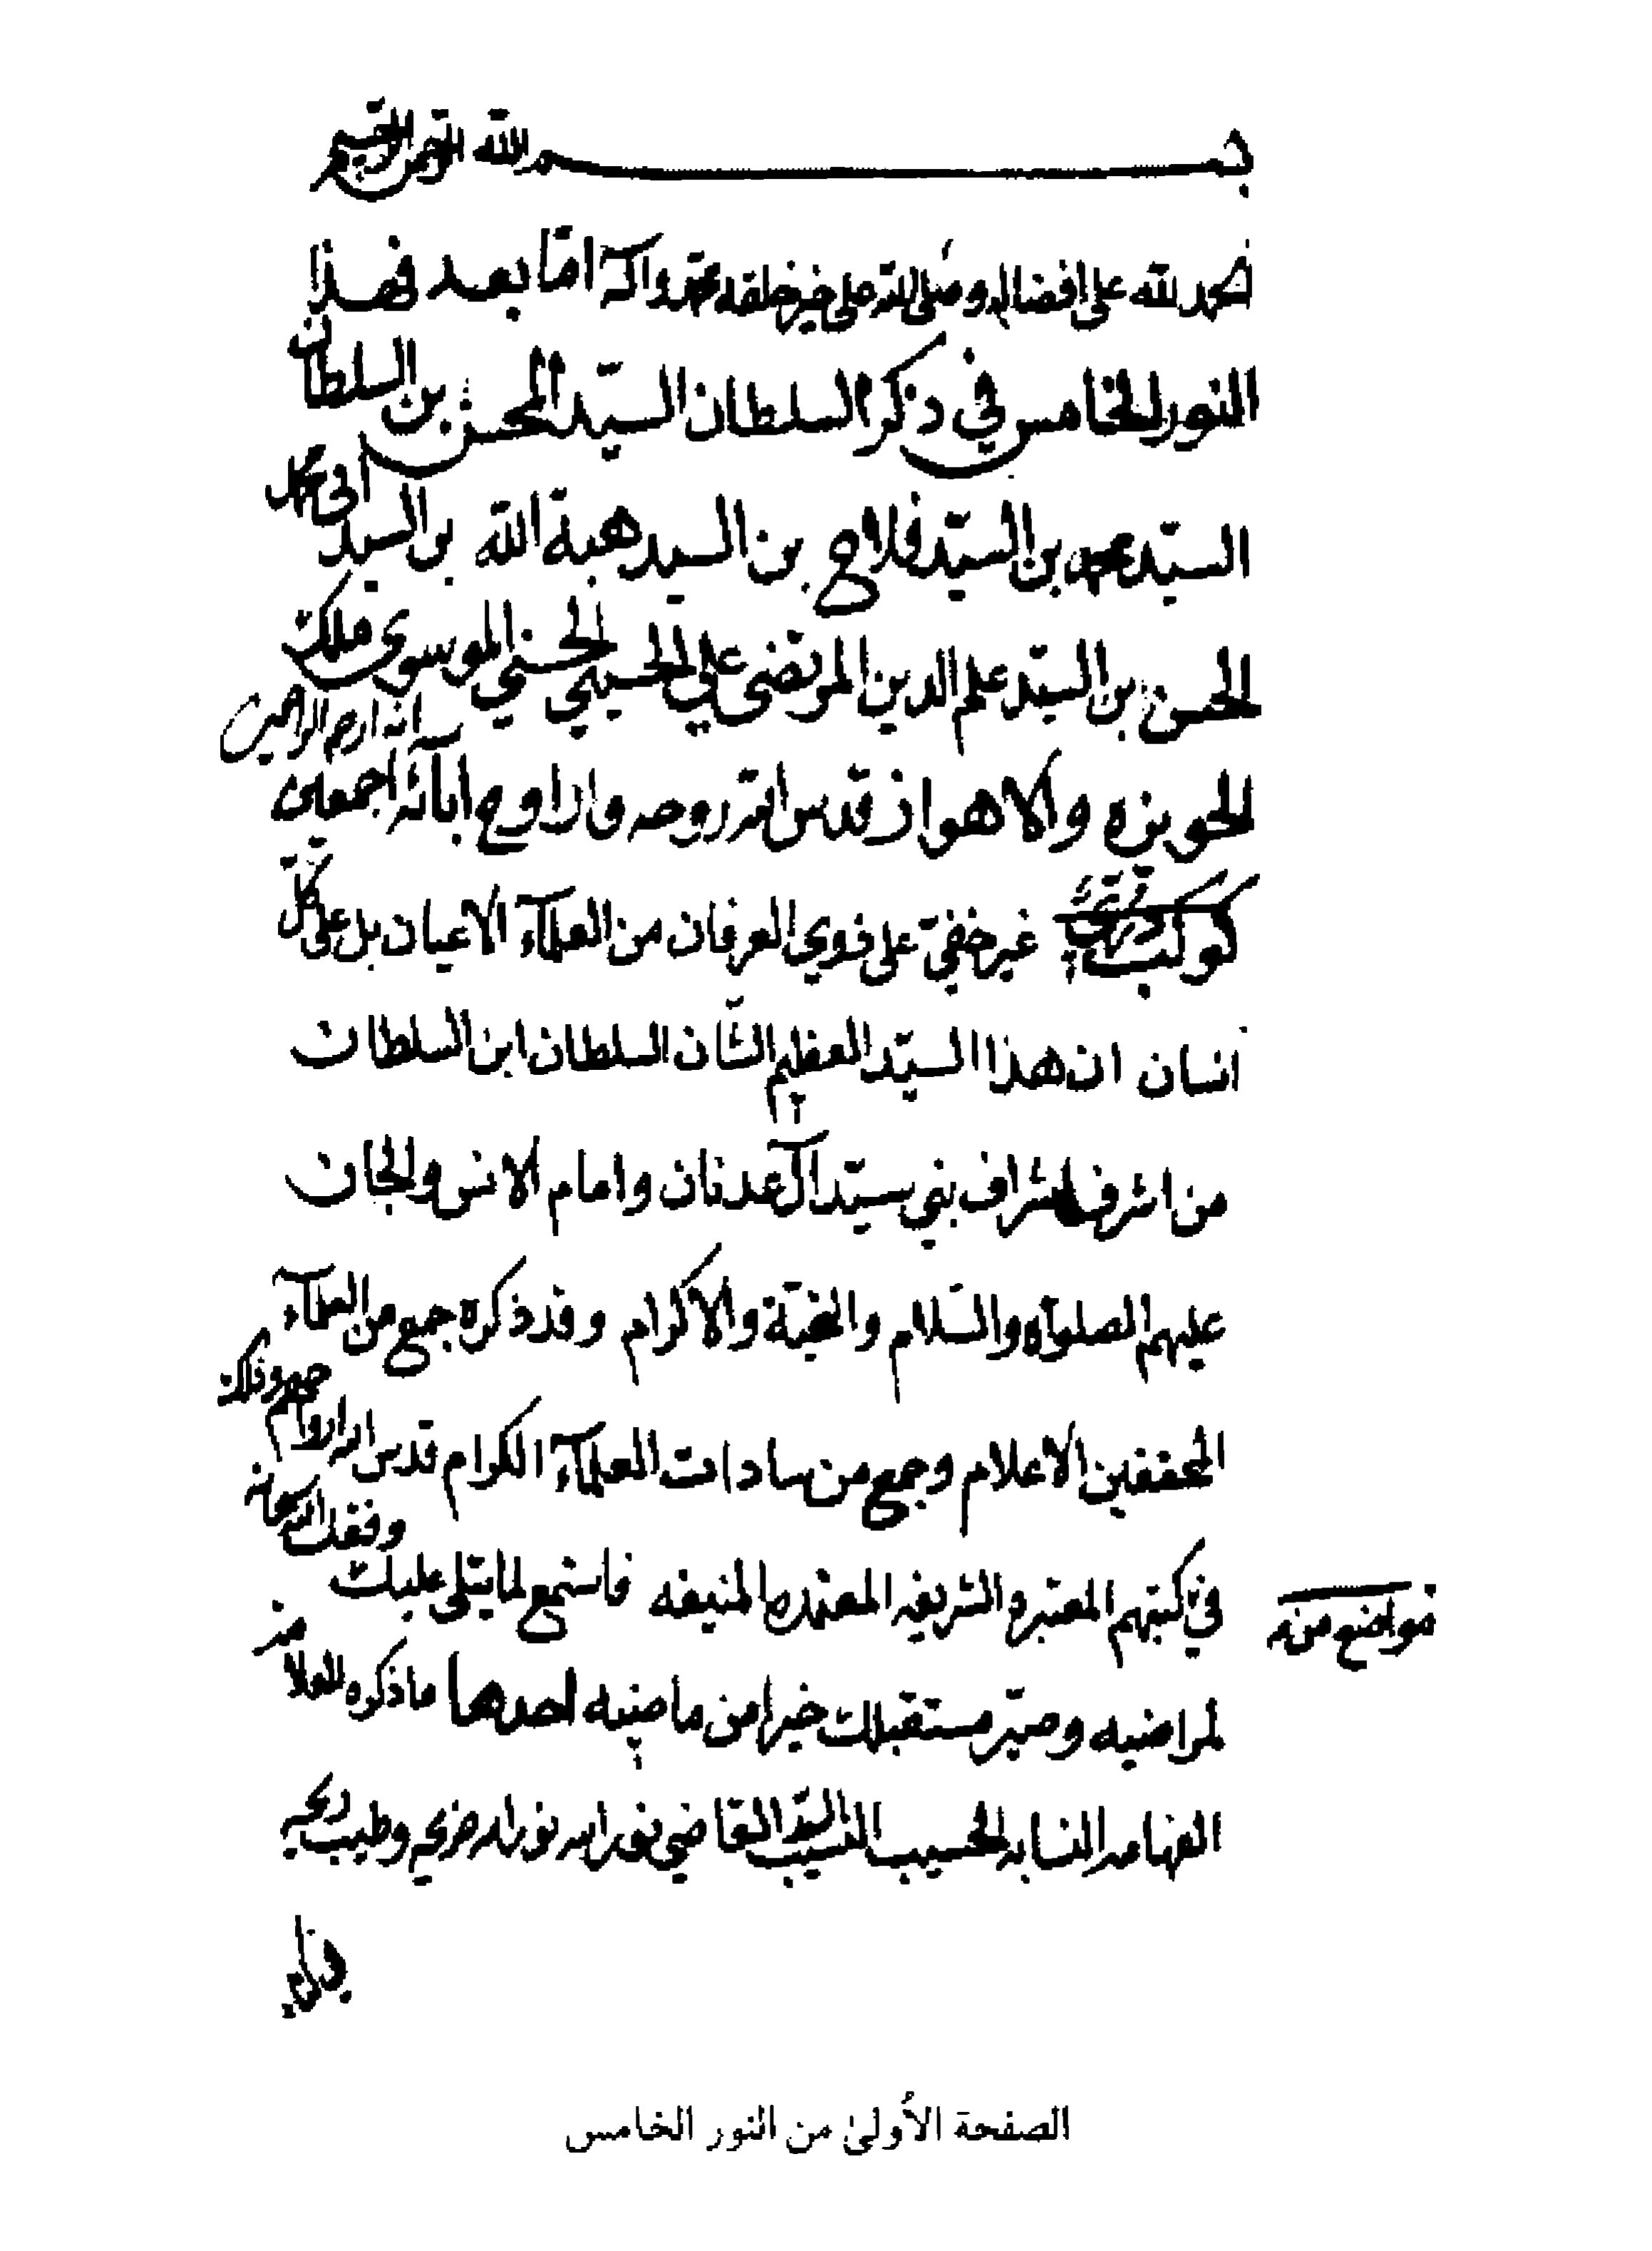 بسم الله الرحمن الرحيم
الحمد لله على افضاله وصلى الله على خير خلقه محمد وآله اما بعد فهذا
النور الخامس في ذكر السلطان السيّد المحسن بن السلطان
السيّد محمد بن السيّد فلاح بن السيد هبة الله بن السيد ابي محمد
الحسن بن السيّد علم الدين المرتضى علي الحسيني الحسني الموسوي ملك
الحويزه والاهواز قدس الله روحه وارواح آبآئه اجمعين انه ارحم الراحمين
كوكب دريّ غير خفيّ على ذوي العرفان من العلمآء الاعيان بل على كلّ
انسان ان هذا السيّد العظيم الشّان السلطان ابن السلطان
من اشرف اشراف بني سيّد آل عدنان وامام الانس والجان
عليهم الصلوة والسّلام والتحيّة والاكرام وقد ذكره جمع من العلمآء
المحققين الاعلام وجمع من سادات العلمآء الكرام قدس الله ارواحهم وذلك
في كتبهم المعتبره الشريفه المعتمده المنيفه فاستمع لما يتلى عليك وفقك الله سبحانه
في مواضع منه
لمراضيه وصيّر مستقبلك خيرا من ماضيه احدها ما ذكره العلامة
الفهامه النسابه الحسيب النسيب السيّد القاضي نور الله نور الله ضريحه وطيب ريحه
الصفحة الأولىٰ من النور الخامس